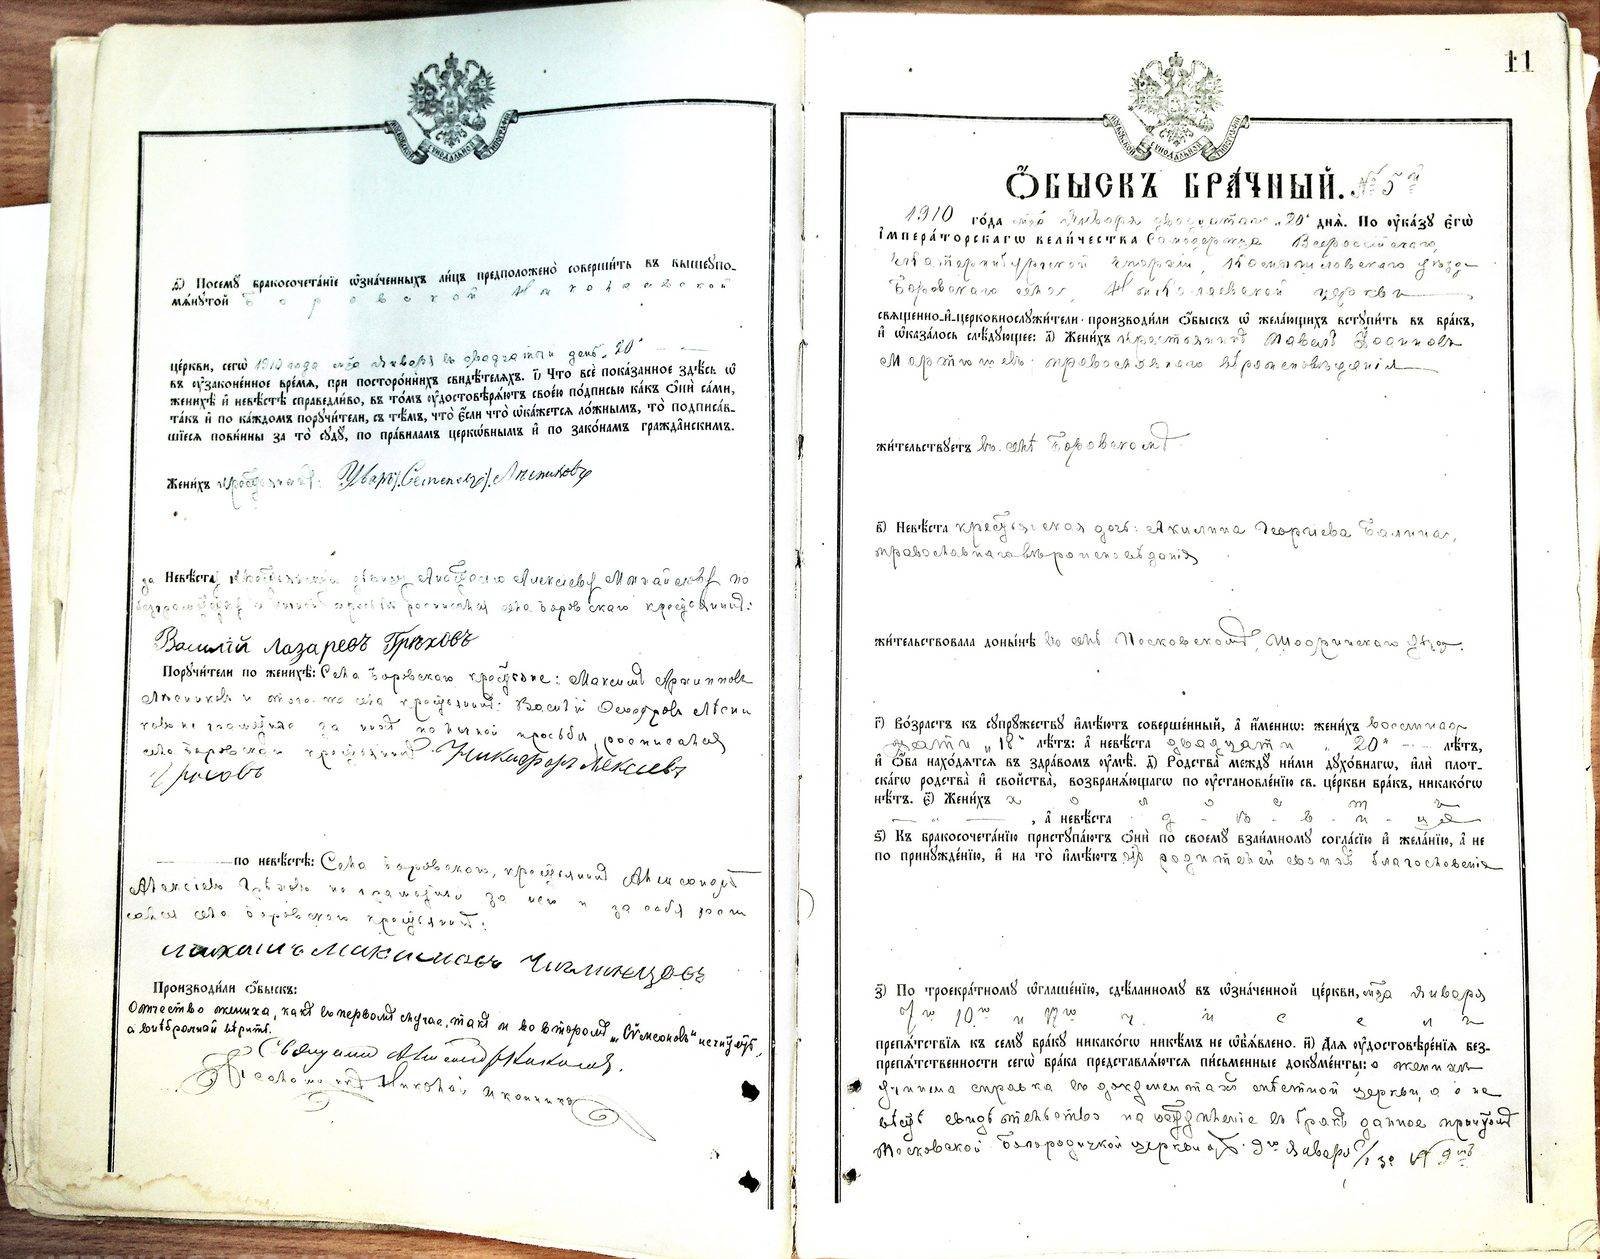 д҃) Посему бракосочета́нїе ѡ҆зна́ченныхъ ли́цъ предполо́жено соверши́ть въ вышеупо-
мѧ́нутой Боровской Николаевской
це́ркви, сегѡ̀ 1910 года января въ двадцатый день "20"
въ ᲂу҆зако́ненное вре́мѧ, при посторо́ннихъ свидѣ́телѧхъ. і҃) Что̀ всѐ пока́занное здѣ́сь ѡ҆
женихѣ̀ и҆ невѣ́стѣ справедли́во, въ то́мъ ᲂу҆достовѣрѧ́ютъ свое́ю по́дписью ка́къ ѻ҆нѝ са́ми,
та́къ и҆ по ка́ждомъ поручи́тели, съ тѣ́мъ, что̀ є҆́сли что̀ ѡ҆ка́жетсѧ ло́жнымъ, то̀ подписа́в-
шїесѧ пови́нны за то̀ сꙋдꙋ̀, по пра́виламъ церко́внымъ и҆ по зако́намъ гражда́нскимъ.
Жени́хъ крестьянинъ: Уваръ Семеновъ Лѣтниковъ
за Невѣ́ста Алексѣеву Михайлову по
росписался села Боровскаго крестьянинъ:
Василій Лазаревъ Грѣховъ
Порꙋчи́тели по женихѣ̀: Села Боровскаго крестьяне: Максимъ Архиповъ
и того-же села крестьянинъ: Василій Ѳеодоровъ
за ихъ личной просьбѣ росписался
села Боровскаго крестьянинъ Никифоръ Алексѣевъ
Грѣховъ
по невѣ́стѣ: Села Боровскаго, крестьянинъ Александръ
Алексѣевъ за него и за себя роспи
сался села Боровскаго крестьянинъ:
Михаилъ Максимовъ
Производи́ли ѻ҆́быскъ:
Отчество жениха, какъ въ первомъ случаѣ, такъ и во второмъ, „Сѵмеоновъ"
а вытертой вѣрить.
Священникъ
Псаломщикъ Николай Иконниковъ
11
Ѻ҆́БЫСКЪ БРА́ЧНЫЙ. № 5й
1910 го́да мца Января двадцатаго "20" днѧ̀. По ᲂу҆ка́зꙋ є҆гѡ̀
і҆мпера́торскагѡ вели́чества Самодержца Всероссійскаго
Екатеринбургской епархіи, Камышловскаго уѣзда
Боровскаго села, Николаевской церкви
свѧще́нно-и҆-церковнослꙋжи́тели производи́ли ѻ҆́быскъ ѡ҆ жела́ющихъ встꙋпи́ть въ бра́къ,
и҆ ѡ҆каза́лось слѣ́дующее: а҃) Жени́хъ крестьянинъ Павелъ
Мартюшевъ православнаго вѣроисповѣданія
жи́тельствуетъ въ селѣ Боровскомъ
в҃) Невѣ́ста крестьянская дочь: Акилина Георгіева Балина,
православнаго вѣроисповѣданія
жи́тельствовала доны́нѣ въ селѣ Московскомъ, Шадринскаго уѣзда.
г҃) Во́зрастъ къ сꙋпрꙋ́жествꙋ и҆мѣ́ютъ соверше́нный, а҆ и҆́менно: жени́хъ восемнад
цати „18" лѣ́тъ: а҆ невѣ́ста двадцати „20" лѣ́тъ,
и҆ ѻ҆́ба нахо́дѧтсѧ въ здра́вомъ ᲂу҆мѣ̀. д҃) Родства̀ междꙋ ни́ми дꙋхо́внагѡ, и҆лѝ пло́т-
скагѡ родства̀ и҆ сво́йства, возбранѧ́ющагѡ по ᲂу҆становле́нїю св. це́ркви бра́къ, никако́гѡ
нѣ́тъ. є҃) Жени́хъ холостъ
, а҆ невѣ́ста дѣвица
ѕ҃) Къ бракосочета́нїю пристꙋпа́ютъ ѻ҆нѝ по своемꙋ̀ взаи́мномꙋ согла́сїю и҆ жела́нїю, а҆ не
по принꙋжде́нїю, и҆ на то̀ и҆мѣ́ютъ отъ родителей своихъ благословенія
з҃) По троекра́тномꙋ ѡ҆глаше́нїю, сдѣ́ланномꙋ въ ѡ҆зна́ченной це́ркви, мца Января
10го и 17го чиселъ
препѧ́тствїѧ къ семꙋ̀ бра́кꙋ никако́гѡ никѣ́мъ не ѡ҆б̾ѧ́влено. и҃) Длѧ̀ ᲂу҆достовѣ́ренїѧ без-
препѧ́тственности сегѡ̀ бра́ка представлѧ́ютсѧ пи́сьменные докꙋме́нты: о женихѣ
учинена справка въ документахъ мѣстной церкви, а о не
вѣстѣ свидѣтельство на вступленіе въ бракъ данное причтомъ
Московской Богородицкой церкви отъ 9го Января за № 9мъ